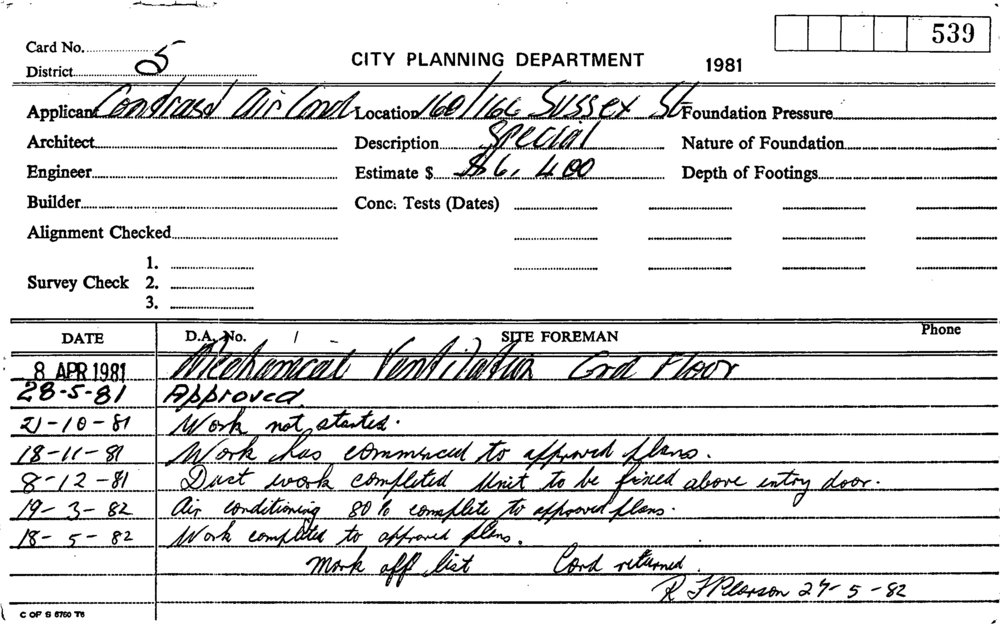 539
Card No. 5
CITY PLANNING DEPARTMENT 1981
District
Applicant Air Cond Location 160/166 Sussex St Foundation Pressure
Architect Description Special Nature of Foundation
Engineer Estimate $ $6,400 Depth of Footings
Builder Conc. Tests (Dates)
Alignment Checked
1.
Survey Check 2.
3.
DATE D.A. No. SITE FOREMAN Phone
8 APR 1981 Mechanical Ventilation Grd Floor
28-5-81 Approved.
21-10-81 Work not started.
18-11-81 Work has commenced to approved plans.
8-12-81 Duct work completed Unit to be fixed above entry door.
19-3-82 Air conditioning 80% complete to approved plans.
18-5-82 Work completed to approved plans.
Mark off list Card returned
R F Pearson 27-5-82
C OF S 8760 T6